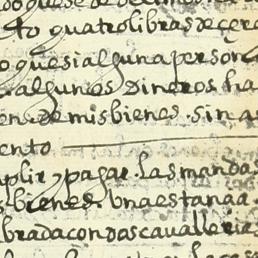 to quatro libras de çera
o que si alguna person
algunos dineros ha
ene de mis bienes. sin as
ento
plir y pagar. las manda
s bienes. Una estançia
brada con dos cavalleria